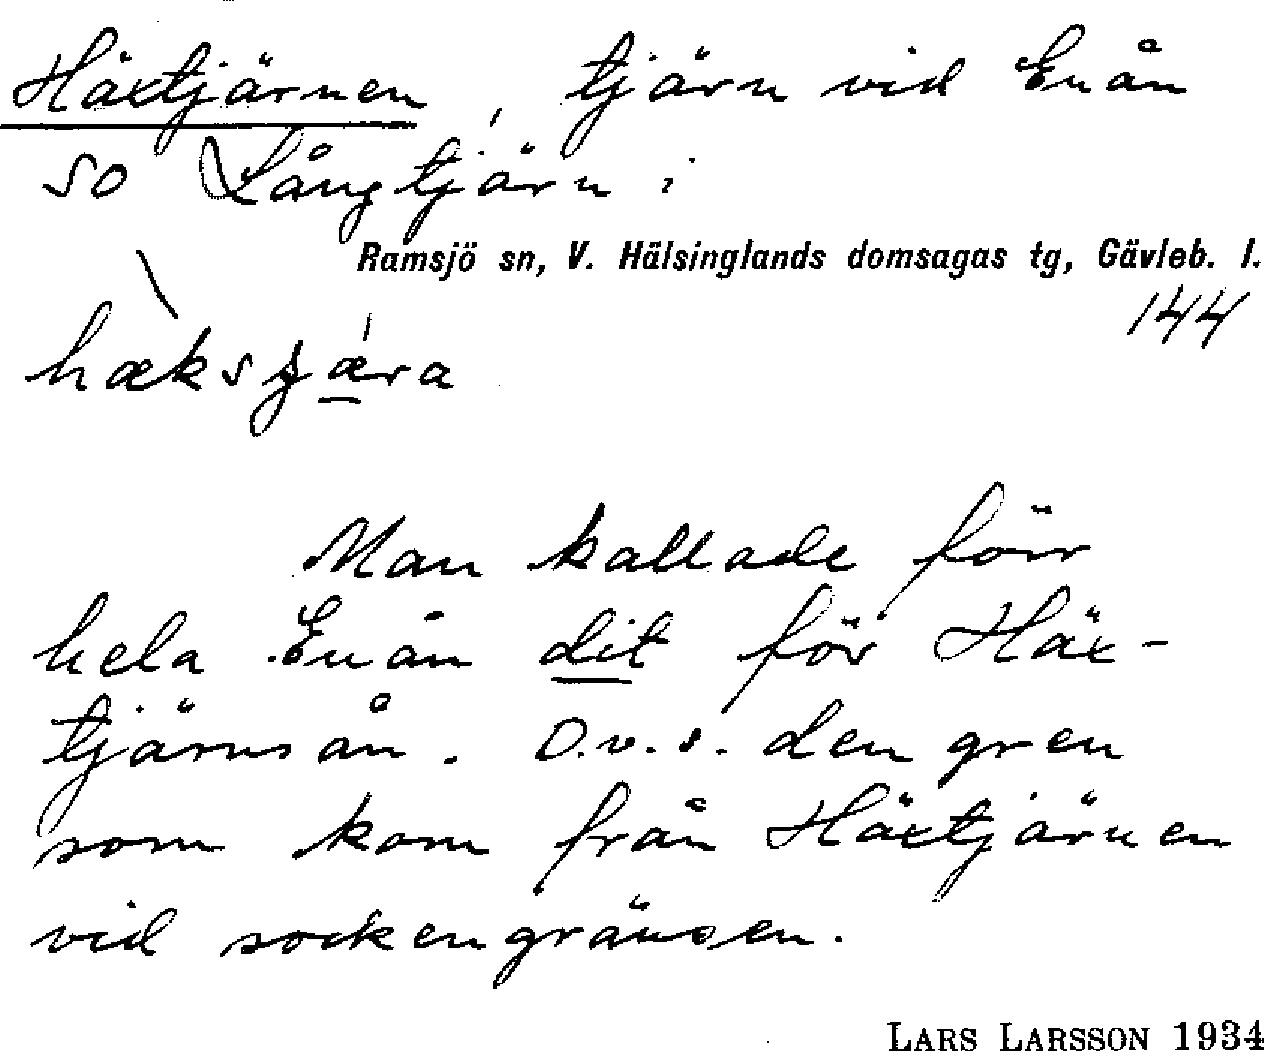 Häxtjärnen, tjärn vid Enån
SO Långtjärn i
Ramsjö sn, V. Hälsinglands domsagas tg, Gävleb. l.
144
Man kallade förr
hela Enån dit för Häx-
tjärnsån. D.v.s. den gren
som kom från Häxtjärnen
vid sockengränsen.
LARS LARSSON 1934